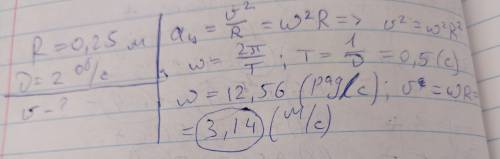 R = 0,25 м
ν = 2 об/с
v - ?
aц = v²/R = ω²R => v² = ω²R²
ω = 2π/T ; T = 1/ν = 0,5 (с)
ω = 12,56 (рад/с) ; v = ωR =
= 3,14 (м/с)